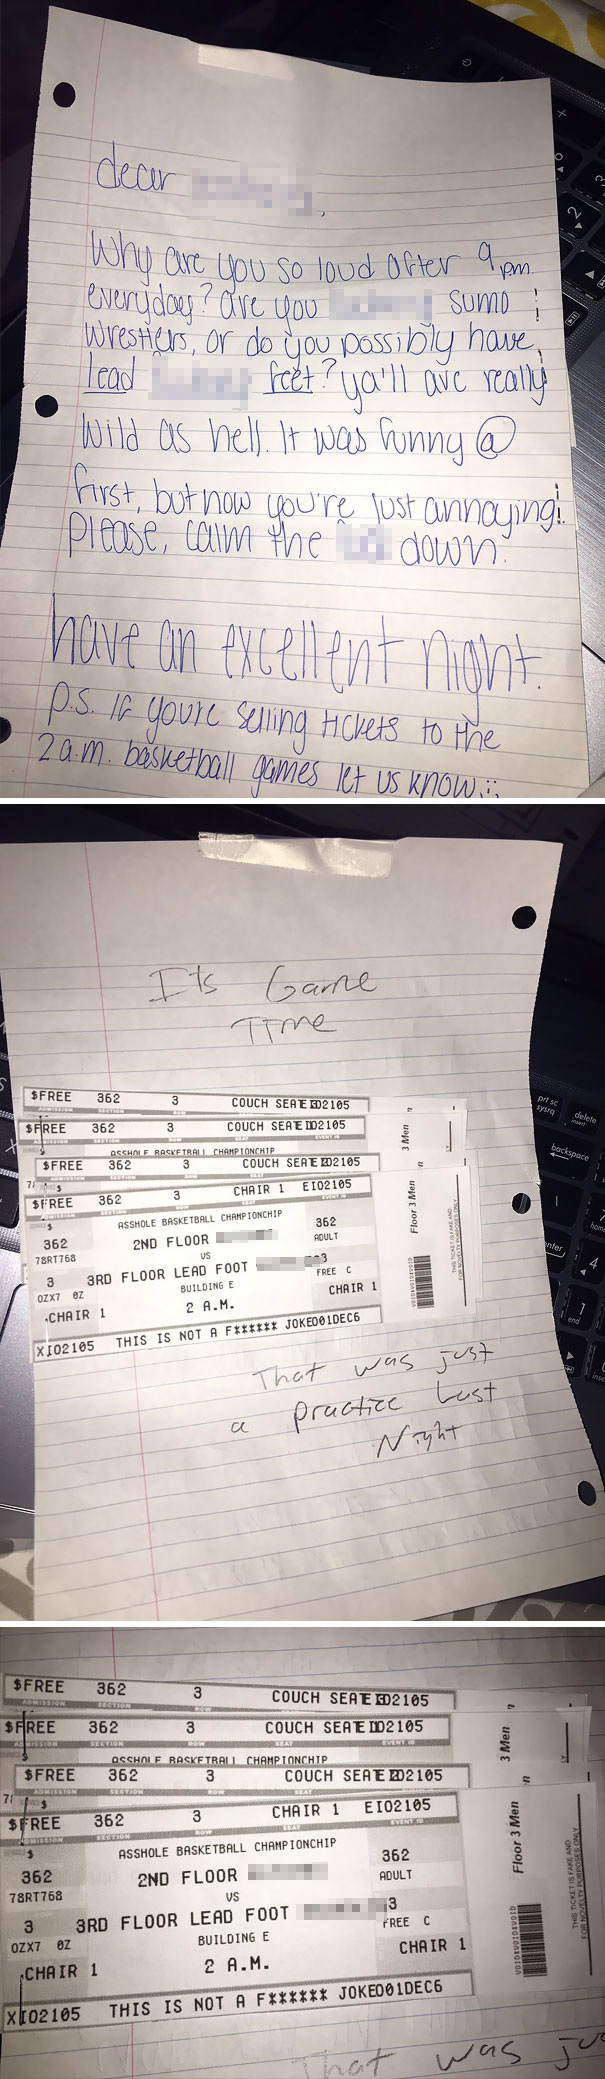 dear
Why are you so loud after 9 p.m.
everyday? are you sumo
wrestlers, or do you possibly have
lead feet? ya'll are really
wild as hell. It was funny @
first, but now you're just annoying!
please, calm the down.
have an excellent night.
p.s. if you're selling tickets to the
2 a.m. basketball games let us know.
Its Game
Time
$FREE 362 3 COUCH SEAT 
ADMISSION SECTION ROW
$FREE 362 3 COUCH SEAT 
ADMISSION SECTION ROW SEAT EVENT ID
ASSHOLE BASKETBALL CHAMPIONCHIP
$FREE 362 3 COUCH SEAT 
$FREE 362 3 CHAIR 1 EI02105
ADMISSION SECTION ROW SEAT EVENT ID
$ ASSHOLE BASKETBALL CHAMPIONCHIP 362
362 2ND FLOOR ADULT
78RT768 VS
3 3RD FLOOR LEAD FOOT 3
OZX7 0Z BUILDING E FREE C
CHAIR 1 2 A.M. CHAIR 1
XI02105 THIS IS NOT A F****** JOKE001DEC6
3 Men
Floor 3 Men
THIS TICKET IS FAKE AND
FOR NOVELTY PURPOSES ONLY
That was just
a practice Last
Night
$FREE 362 3 COUCH SEAT 
ADMISSION SECTION ROW SEAT
$FREE 362 3 COUCH SEAT 
ADMISSION SECTION ROW SEAT EVENT ID
ASSHOLE BASKETBALL CHAMPIONCHIP
$FREE 362 3 COUCH SEAT 
ADMISSION SECTION ROW SEAT
$FREE 362 3 CHAIR 1 EI02105
ADMISSION SECTION ROW SEAT EVENT ID
$ ASSHOLE BASKETBALL CHAMPIONCHIP 362
362 2ND FLOOR ADULT
78RT768 VS
3 3RD FLOOR LEAD FOOT 3
OZX7 0Z BUILDING E FREE C
CHAIR 1 2 A.M. CHAIR 1
XI02105 THIS IS NOT A F****** JOKE001DEC6
3 Men
Floor 3 Men
VOID#VOID#VOID
THIS TICKET IS FAKE AND
FOR NOVELTY PURPOSES ONLY
That was jus
prt sc
sysrq
delete
insert
backspace
enter
4
1
end